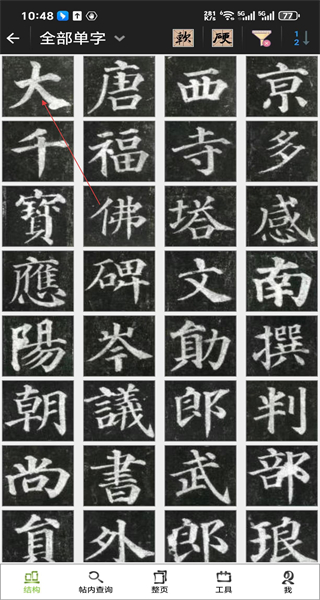 10:48
281 K/S 6 5G 5G 77
全部单字 軟 硬 1 2
大唐西京
千福寺多
寶佛塔感
應碑文南
陽岑勛撰
朝議郎判
尚書武部
員外郎琅
结构 帖内查询 整页 工具 我